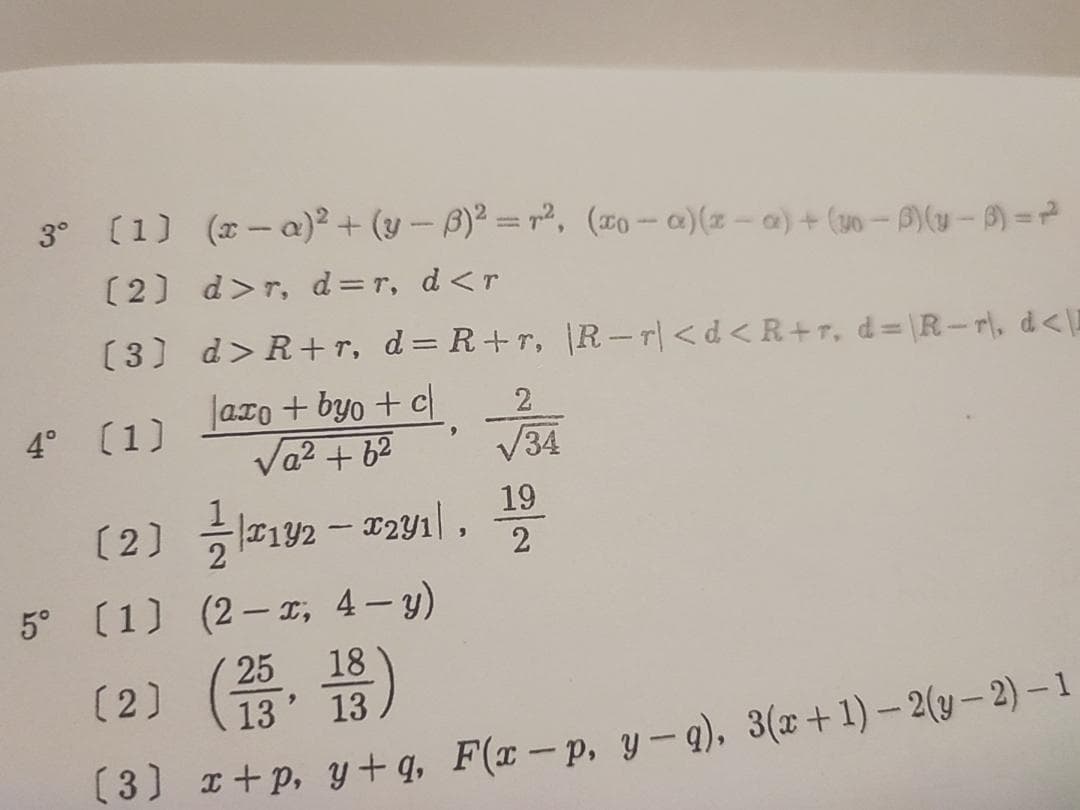 3° 〔1〕 (x − α)² + (y − β)² = r², (x₀ − α)(x − α) + (y₀ − β)(y − β) = r²
〔2〕 d > r, d = r, d < r
〔3〕 d > R + r, d = R + r, |R − r| < d < R + r, d = |R − r|, d < |
4° 〔1〕 |ax₀ + by₀ + c| / √(a² + b²), 2/√34
〔2〕 1/2 |x₁y₂ − x₂y₁|, 19/2
5° 〔1〕 (2 − x, 4 − y)
〔2〕 (25/13, 18/13)
〔3〕 x + p, y + q, F(x − p, y − q), 3(x + 1) − 2(y − 2) − 1